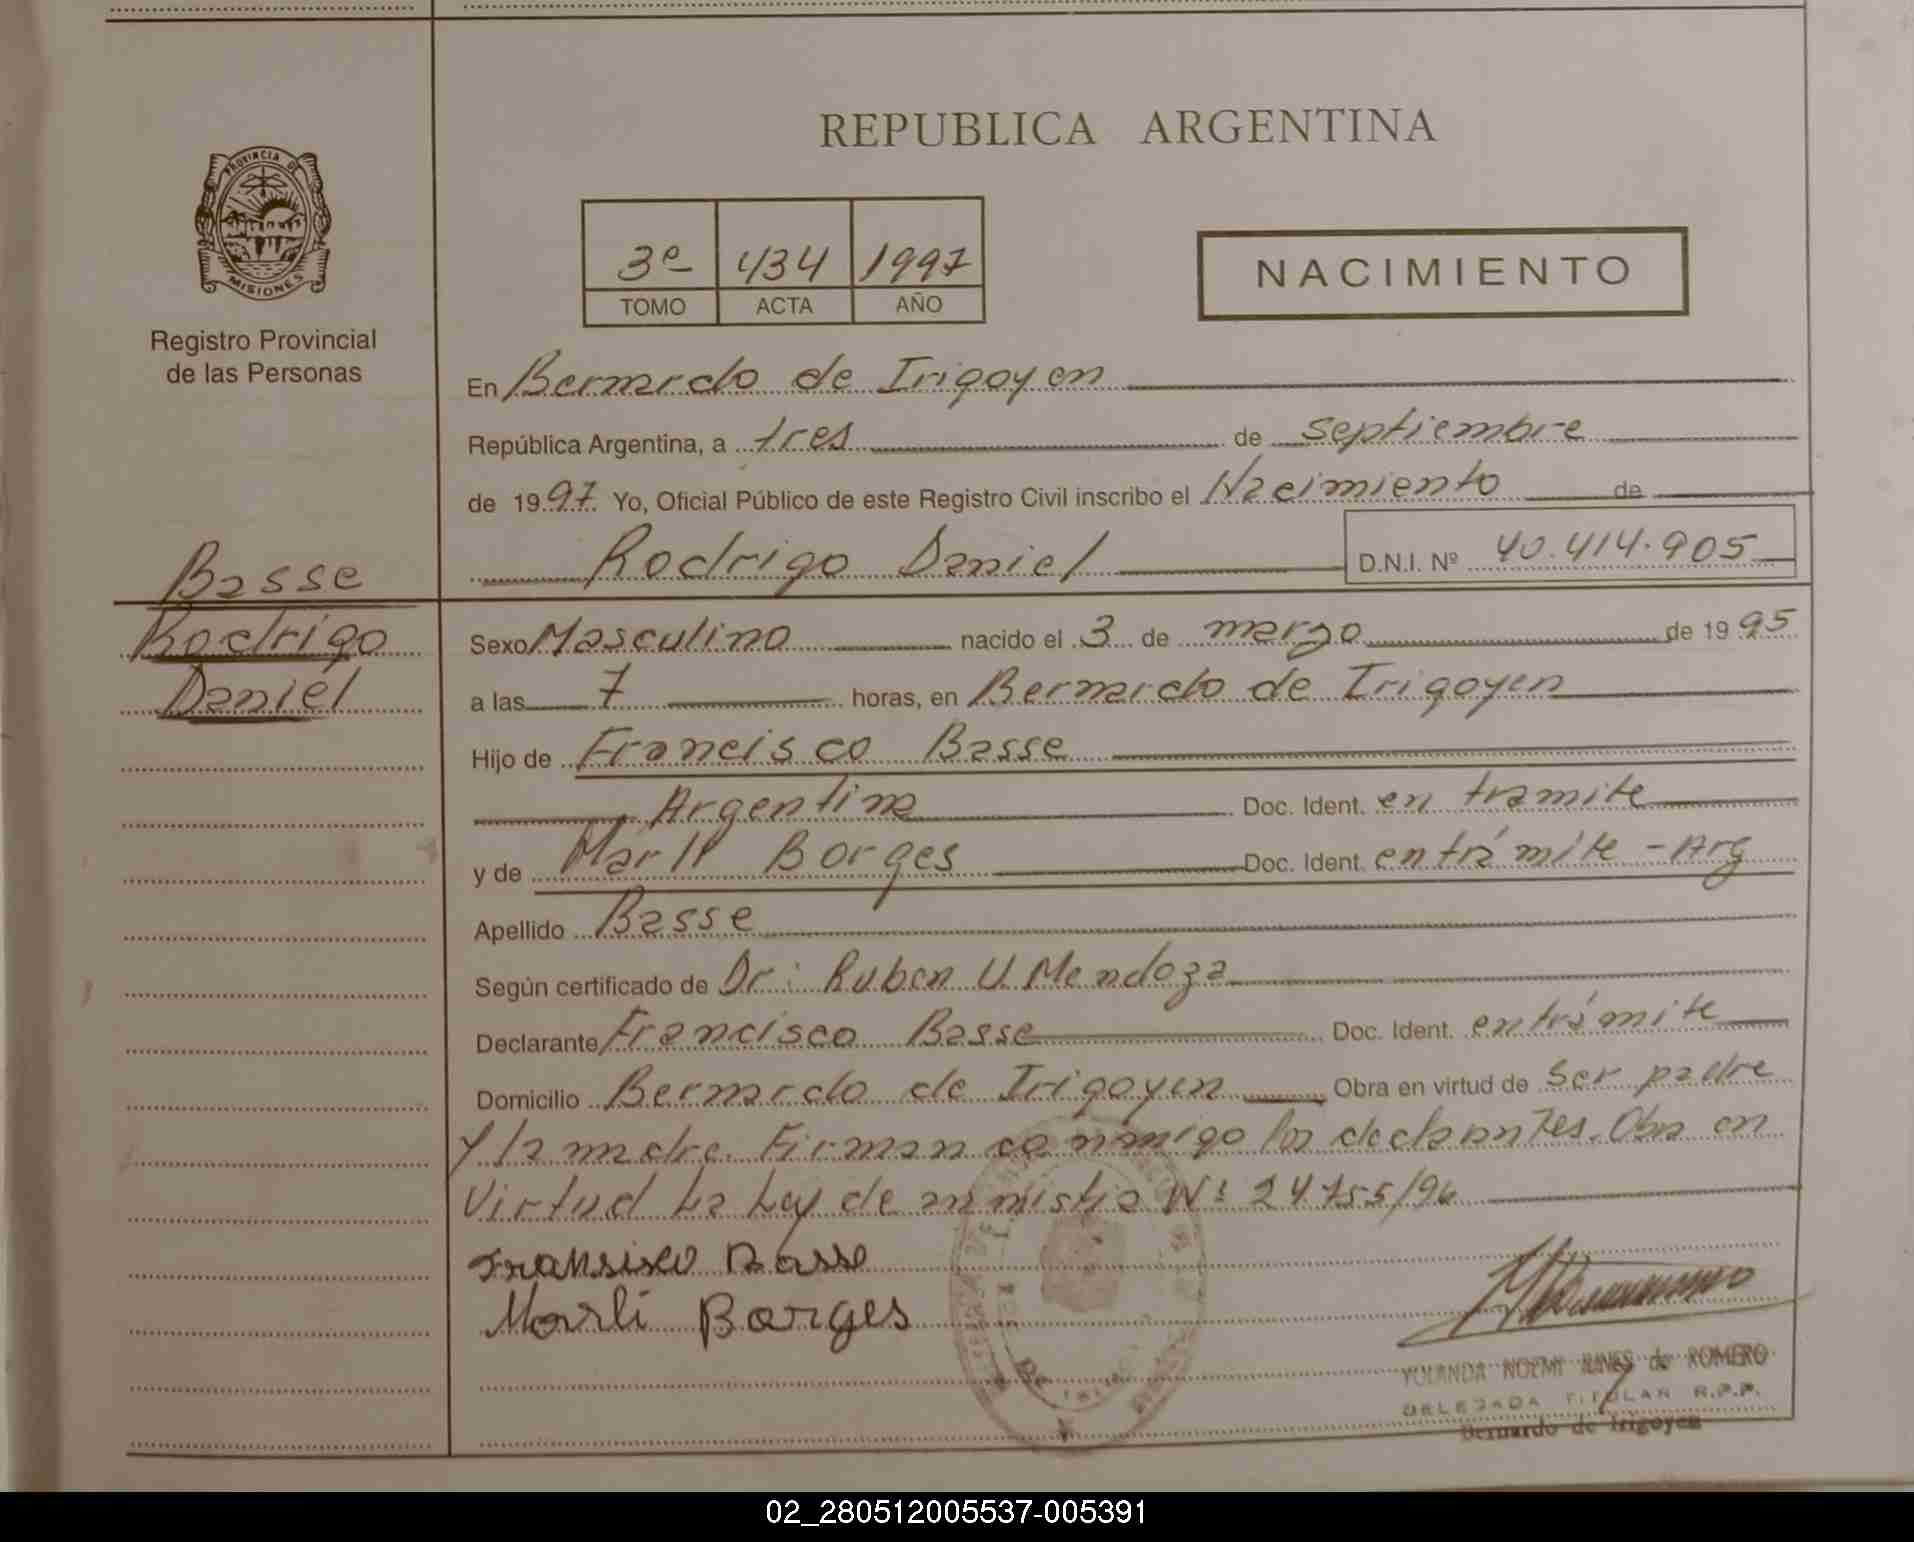 REPUBLICA ARGENTINA
PROVINCIA DE
MISIONES
Registro Provincial
de las Personas
3º 434 1997
TOMO ACTA AÑO
NACIMIENTO
En Bernardo de Irigoyen
República Argentina, a tres de septiembre
de 1997. Yo, Oficial Público de este Registro Civil inscribo el Nacimiento de
Rodrigo Daniel D.N.I. Nº 40.414.905
Basse
Rodrigo
Daniel
Sexo Masculino nacido el 3 de marzo de 1995
a las 7 horas, en Bernardo de Irigoyen
Hijo de Francisco Basse
Argentina Doc. Ident. en tramite
y de Marli Borges Doc. Ident. en trámite - Arg
Apellido Basse
Según certificado de Dr: Ruben U. Mendoza
Declarante Francisco Basse Doc. Ident. en trámite
Domicilio Bernardo de Irigoyen Obra en virtud de ser padre
y la madre. Firman conmigo los declarantes. Obra en
Virtud La Ley de amnistia Nº 24.755/96
Fransisco Basse
Marli Borges
YOLANDA NOEMI de ROMERO
DELEGADA TITULAR R.P.P.
Bernardo de Irigoyen
02_280512005537-005391